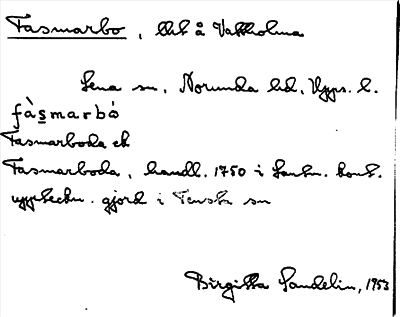 Fasmarbo, bbt å Vattholma
Lena sn, Norunda hd, Upps. l.
fàsmarbó
Fasmarboda ek
Fasmarboda, handl. 1750 i Lantm. kont.
uppteckn. gjord i Tensta sn
Birgitta Sandelin, 1953